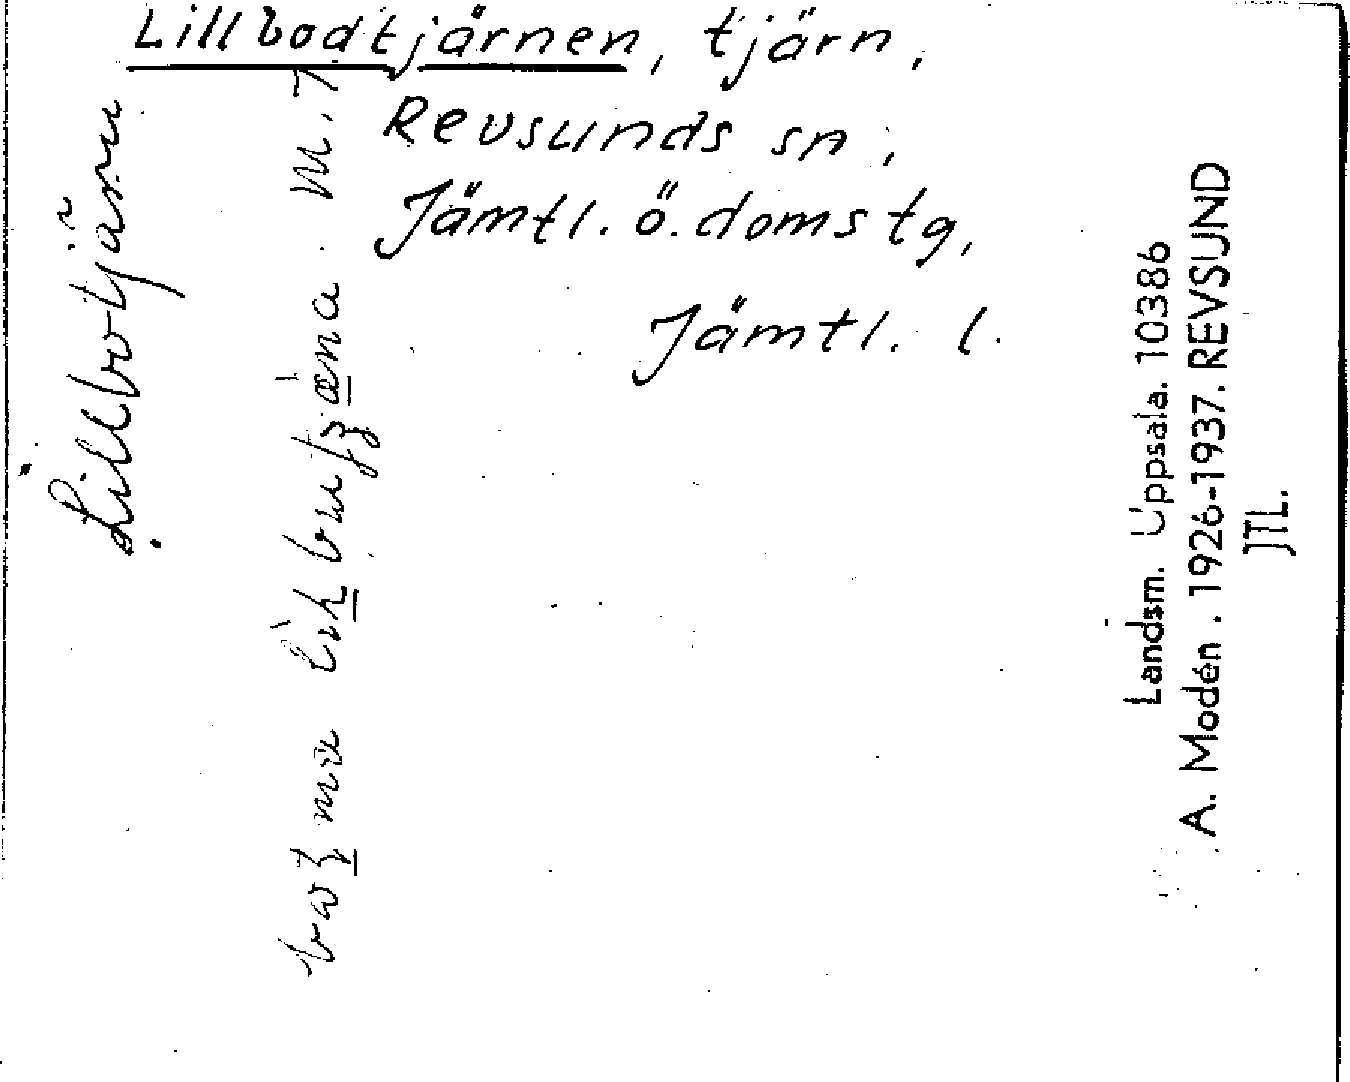 Lillbodtjärnen, tjärn,
Revsunds sn,
Jämtl. ö. domstg,
Jämtl. l.
Lillbotjärn
M. 7
Landsm. Uppsala. 10386
A. Modén. 1926-1937. REVSUND
JTL.